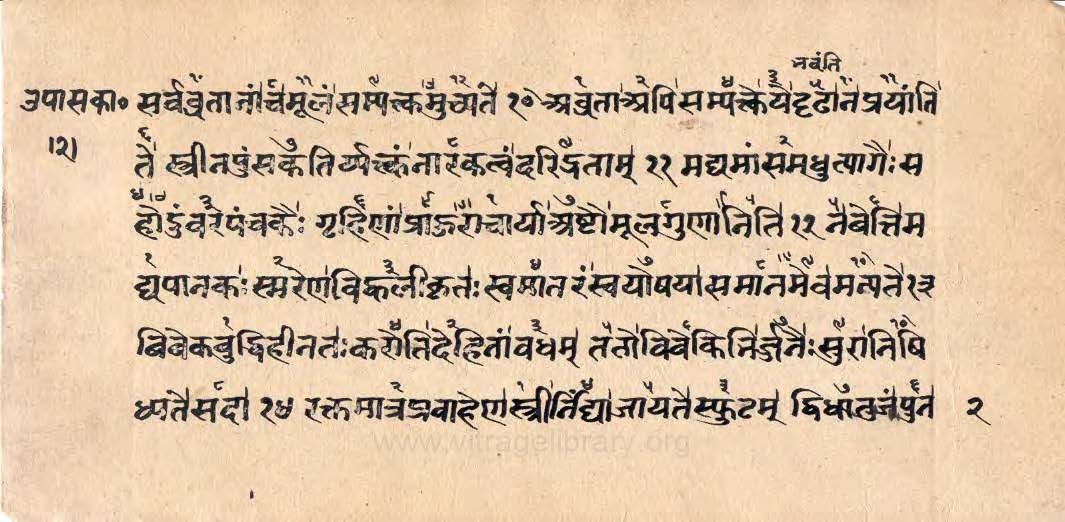 नवंति
उपासका० सर्वव्रतानां च मूलं सम्यक्त्कमुच्यते १० अव्रता अपि सम्यक्त्के ये दृढा न प्रयांति
।२। ते स्त्रीनपुंसकतिर्यक्त्कं नारकत्वं दरिद्रताम् ११ मद्यमांसमधुत्यागैः स
होडुंवरपंचकैः गृहिणां प्राहुराचार्या अष्टौ मूलगुणानिति १२ न वेत्ति म
द्यपानकः स्मरेण विकलीकृतः स्वमातरं स्वयोषया समानमेव मन्यते १३
विवेकबुद्धिहीनतः करोति देहिनां वधम् ततो विवेकिभिर्जनैः सुरा निषि
ध्यते सदा १४ रक्तमात्रप्रवाहेण स्त्री निंद्या जायते स्फुटम् द्विधातुजं पुन २
www.vitragelibrary.org